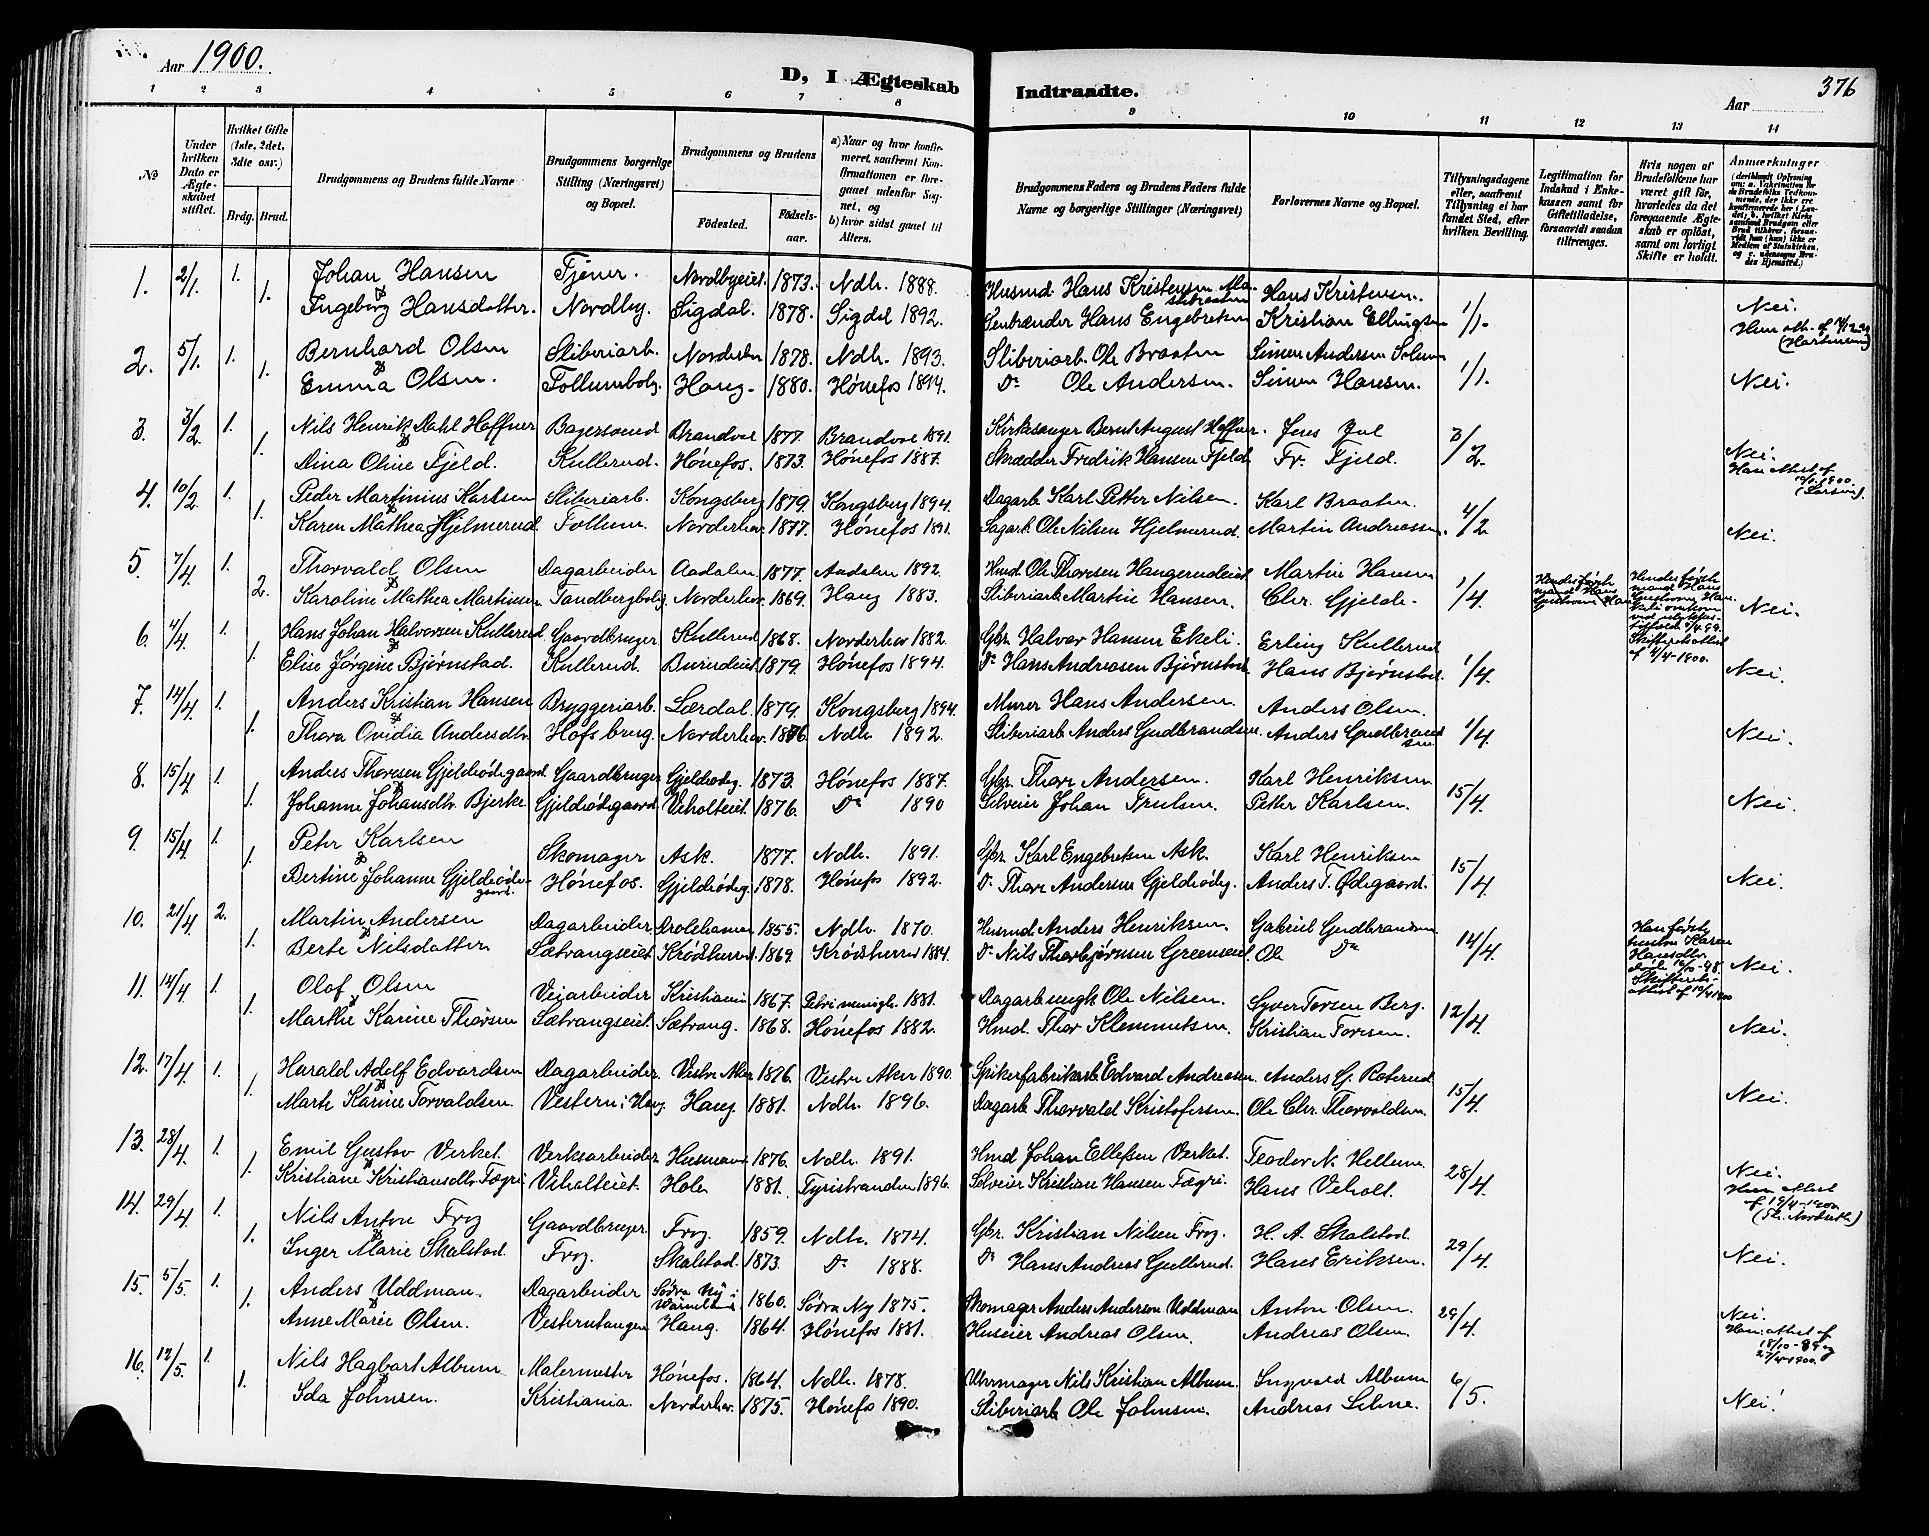 Aar 1900.
D, I Ægteskab Indtraadte.
Aar 376
1 2 3 4 5 6 7 8 9 10 11 12 13 14
No
Under hvilken Dato er Ægteskabet stiftet.
Hvilket Gifte (1ste, 2det, 3die osv.)
Brdg. Brud.
Brudgommens og Brudens fulde Navne
Brudgommens borgerlige Stilling (Næringsvei) og Bopæl.
Brudgommens og Brudens
Fødested. Fødselsaar.
a) Naar og hvor konfirmeret, saafremt Konfirmationen er foregaaet udenfor Sognet, og b) hvor sidst gaaet til Alters.
Brudgommens Faders og Brudens Faders fulde Navne og borgerlige Stillinger (Næringsvei)
Forlovernes Navne og Bopæl.
Tillysningsdagene eller, saafremt Tillysning ei har fundet Sted, efter hvilken Bevilling.
Legitimation for Indskud i Enkekassen samt for Giftetilladelse, forsaavidt saadan tiltrænges.
Hvis nogen af Brudefolkene har været gift før, hvorledes da det foregaaende Ægteskab er opløst, samt om lovligt Skifte er holdt.
Anmærkninger
1. 2/1 1. Johan Hansen Tjener. Nordbyeiet 1873. Ndh. 1888. Husmd. Hans Kristensen Hans Kristensen. 1/1.
1. Ingeborg Hansdatter. Nordby. Sigdal. 1878. Sigdal 1892. Hans Engebretsen Kristian Ellingsen Nei.
2. 5/1 1. Bernhard Olsen Sliberiarb. Norderhov 1878. Ndh. 1893. Sliberiarb. Ole Braaten Simen Andersen Solum 1/1.
1. Emma Olsen. Follumbolig. Haug. 1880. Hónefos 1894. Do Ole Andersen. Simen Hansen. Nei.
3. 3/2 1. Nils Henrik Dahl Haffner Bagersvend Brandval 1877. Brandval 1891. Kirkesanger Bernt August Haffner. Jens Jul 3/2.
1. Dina Oline Fjeld. Kullerud. Hónefos. 1873. Hónefos 1887. Skrædder Fredrik Hansen Fjeld Fr. Fjeld. Nei.
4. 10/2 1. Peder Martinius Karlsen Sliberiarb. Kongsberg 1879. Kongsberg 1894. Dagarb. Karl Petter Nilsen. Karl Braaten 4/2
1. Karen Mathea Hjelmerud. Follum. Norderhov. 1877. Hónefos 1891. Sagarb. Ole Nilsen Hjelmerud. Martin Andreassen. Nei.
5. 7/4 1. Thorvald Olsen Dagarbeider Aadalen. 1877. Aadalen 1892. Husmd. Ole Thoresen Haugerudeiet Martin Hansen 1/4
2. Karoline Mathea Martinsen Tandbergbolig. Norderhov. 1869. Haug 1883. Sliberiarb. Martin Hansen. Chr. Gjelde. Nei.
6. 4/4 1. Hans Johan Halvorsen Kullerud Gaardbruger Kullerud 1868. Norderhov 1882. Gbr. Halvor Hansen Ekeli. Erling Kullerud 1/4.
1. Elise Jørgine Bjørnstad. Kullerud. 1879. Hónefos 1894. Do Hans Andreasen Bjørnstad. Hans Bjørnstad. Nei.
7. 14/4 1. Anders Kristian Hansen Bryggeriarb. Lærdal. 1879. Kongsberg 1894. Murer Hans Andersen Anders Olsen. 1/4.
1. Thora Ovidia Andersdtr. Hofsbrug. Norderhov. 1876. Ndh. 1892. Sliberiarb. Anders Gudbrandsen. Anders Gudbrandsen. Nei.
8. 15/4 1. Anders Thoresen Gjeldeødegaard. Gaardbruger Gjeldeødeg. 1873. Hónefos 1887. Gbr. Thore Andersen. Karl Henriksen 15/4.
1. Johanne Johansdtr. Bjerke Gjeldeødegaard. Veholteiet 1876. Do 1890 Selveier Johan Trulsen. Petter Karlsen. Nei.
9. 15/4 1. Peter Karlsen Skomager Ask. 1877. Ndh. 1891. Gbr. Karl Engebretsen Ask. Karl Henriksen 15/4
1. Bertine Johanne Gjeldeødegaard. Hónefos. Gjeldeødeg. 1878. Hónefos 1892. Do Thore Andersen Gjeldeødeg. Anders T. Ødegaard. Nei.
10. 21/4 2. Martin Andersen Dagarbeider 1855. Ndh. 1870. Husmd. Anders Henriksen. Gabriel Gudbrandsen 14/4.
1. Berte Nilsdatter Sætrangseiet Krødsherred. 1869. Krødsherred 1884. Do Nils Thorbjørnsen Greenseiet. Ole Do Nei.
11. 14/4 1. Olaf Olsen Veiarbeider Kristiania 1867. Petri menigh. 1881. Dagarb. Ole Nilsen. Syver Torsen Berg. 12/4.
1. Marthe Karine Thorsen Sætrangseiet. Sætrang. 1868. Hónefos 1882. Husmd. Thor Klemmetsen. Kristian Toresen. Nei.
12. 17/4 1. Harald Adolf Edvardsen Dagarbeider. Vestre Aker 1876. Vestre Aker 1890. Spikerfabrikarb. Edvard Andreasen. Anders G. Ræterud 15/4.
1. Marth. Karine Torvaldsen. Vestern i Haug Haug. 1881. Ndh. 1896. Dagarb. Thorvald Kristofersen. Ole Chr. Thorvoldsen Nei.
13. 28/4 1. Emil Gustav Verket. Verksarbeider. 1876. Ndh. 1891. Husmd. Johan Ellefsen Verket. Teodor N. Hellum. 28/4.
1. Kristiane Kristiansdtr. Fægri. Veholteiet. Hole 1881. Tyristranden 1896. Selveier Kristian Hansen Fægri. Hans Veholt. Nei.
14. 29/4 1. Nils Anton Frog Gaardbruger. Frog. 1859. Ndh. 1874. Gbr. Kristian Nilsen Frog. H. A. Skalstad. 29/4.
1. Inger Marie Skalstad. Frog. Skalstad. 1873. Do 1888. Do Hans Andreas Gullerud. Hans Eriksen. Nei.
15. 5/5 1. Anders Uddman. Dagarbeider Södra Ny i Värmland 1860. Södra Ny 1875. Skomager Anders Anderson Uddman Anton Olsen. 29/4.
1. Anne Marie Olsen. Vesterntangen Haug. 1864. Hónefos 1881. Huseier Andreas Olsen. Andreas Olsen. Nei.
16. 12/5 1. Nils Hagbart Album Malermester Hónefos. 1864. Ndh. 1878. Uhrmager Nils Kristian Album. Ingvald Album 6/5.
1. Ida Johnsen. Kristiania. Norderhov. 1875. Hónefos 1890. Sliberiarb. Ole Johnsen. Andreas Nei.